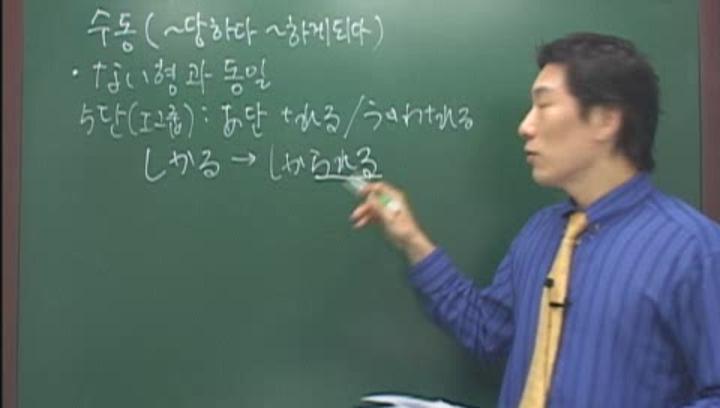 수동 (~당하다 ~하게되다)
· ない형과 동일
5단(I그룹) : あ단 + れる / う→わ+れる
しかる → しかられる